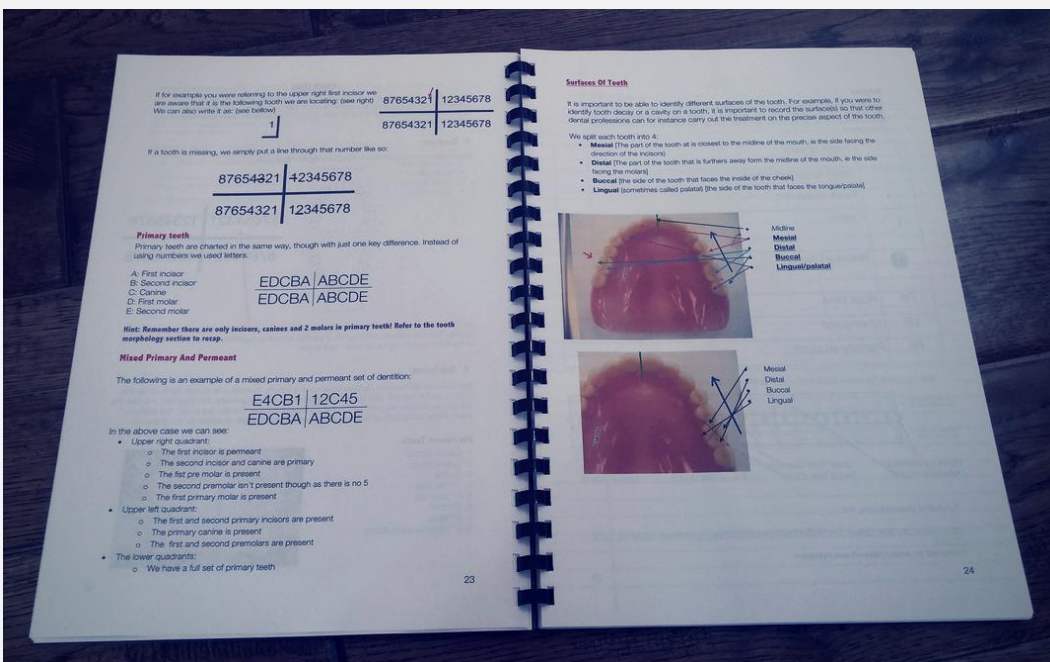 If for example you were referring to the upper right first incisor we
are aware that it is the following tooth we are locating: (see right)
We can also write it as: (see bellow)
1
87654321 12345678
87654321 12345678
If a tooth is missing, we simply put a line through that number like so:
87654321 12345678
87654321 12345678
Primary teeth
Primary teeth are charted in the same way, though with just one key difference. Instead of
using numbers we used letters.
A: First incisor
B: Second incisor
C: Canine
D: First molar
E: Second molar
EDCBA ABCDE
EDCBA ABCDE
Hint: Remember there are only incisors, canines and 2 molars in primary teeth! Refer to the tooth
morphology section to recap.
Mixed Primary And Permeant
The following is an example of a mixed primary and permeant set of dentition:
E4CB1 12C45
EDCBA ABCDE
In the above case we can see:
• Upper right quadrant:
o The first incisor is permeant
o The second incisor and canine are primary
o The fist pre molar is present
o The second premolar isn't present though as there is no 5
o The first primary molar is present
• Upper left quadrant:
o The first and second primary incisors are present
o The primary canine is present
o The first and second premolars are present
• The lower quadrants:
o We have a full set of primary teeth
23
Surfaces Of Teeth
It is important to be able to identify different surfaces of the tooth. For example, if you were to
identify tooth decay or a cavity on a tooth, it is important to record the surface(s) so that other
dental professions can for instance carry out the treatment on the precise aspect of the tooth.
We split each tooth into 4:
• Mesial [The part of the tooth at is closest to the midline of the mouth, ie the side facing the
direction of the incisors]
• Distal [The part of the tooth that is furthers away form the midline of the mouth, ie the side
facing the molars]
• Buccal [the side of the tooth that faces the inside of the cheek]
• Lingual (sometimes called palatal) [the side of the tooth that faces the tongue/palate]
Midline
Mesial
Distal
Buccal
Lingual/palatal
Mesial
Distal
Buccal
Lingual
24